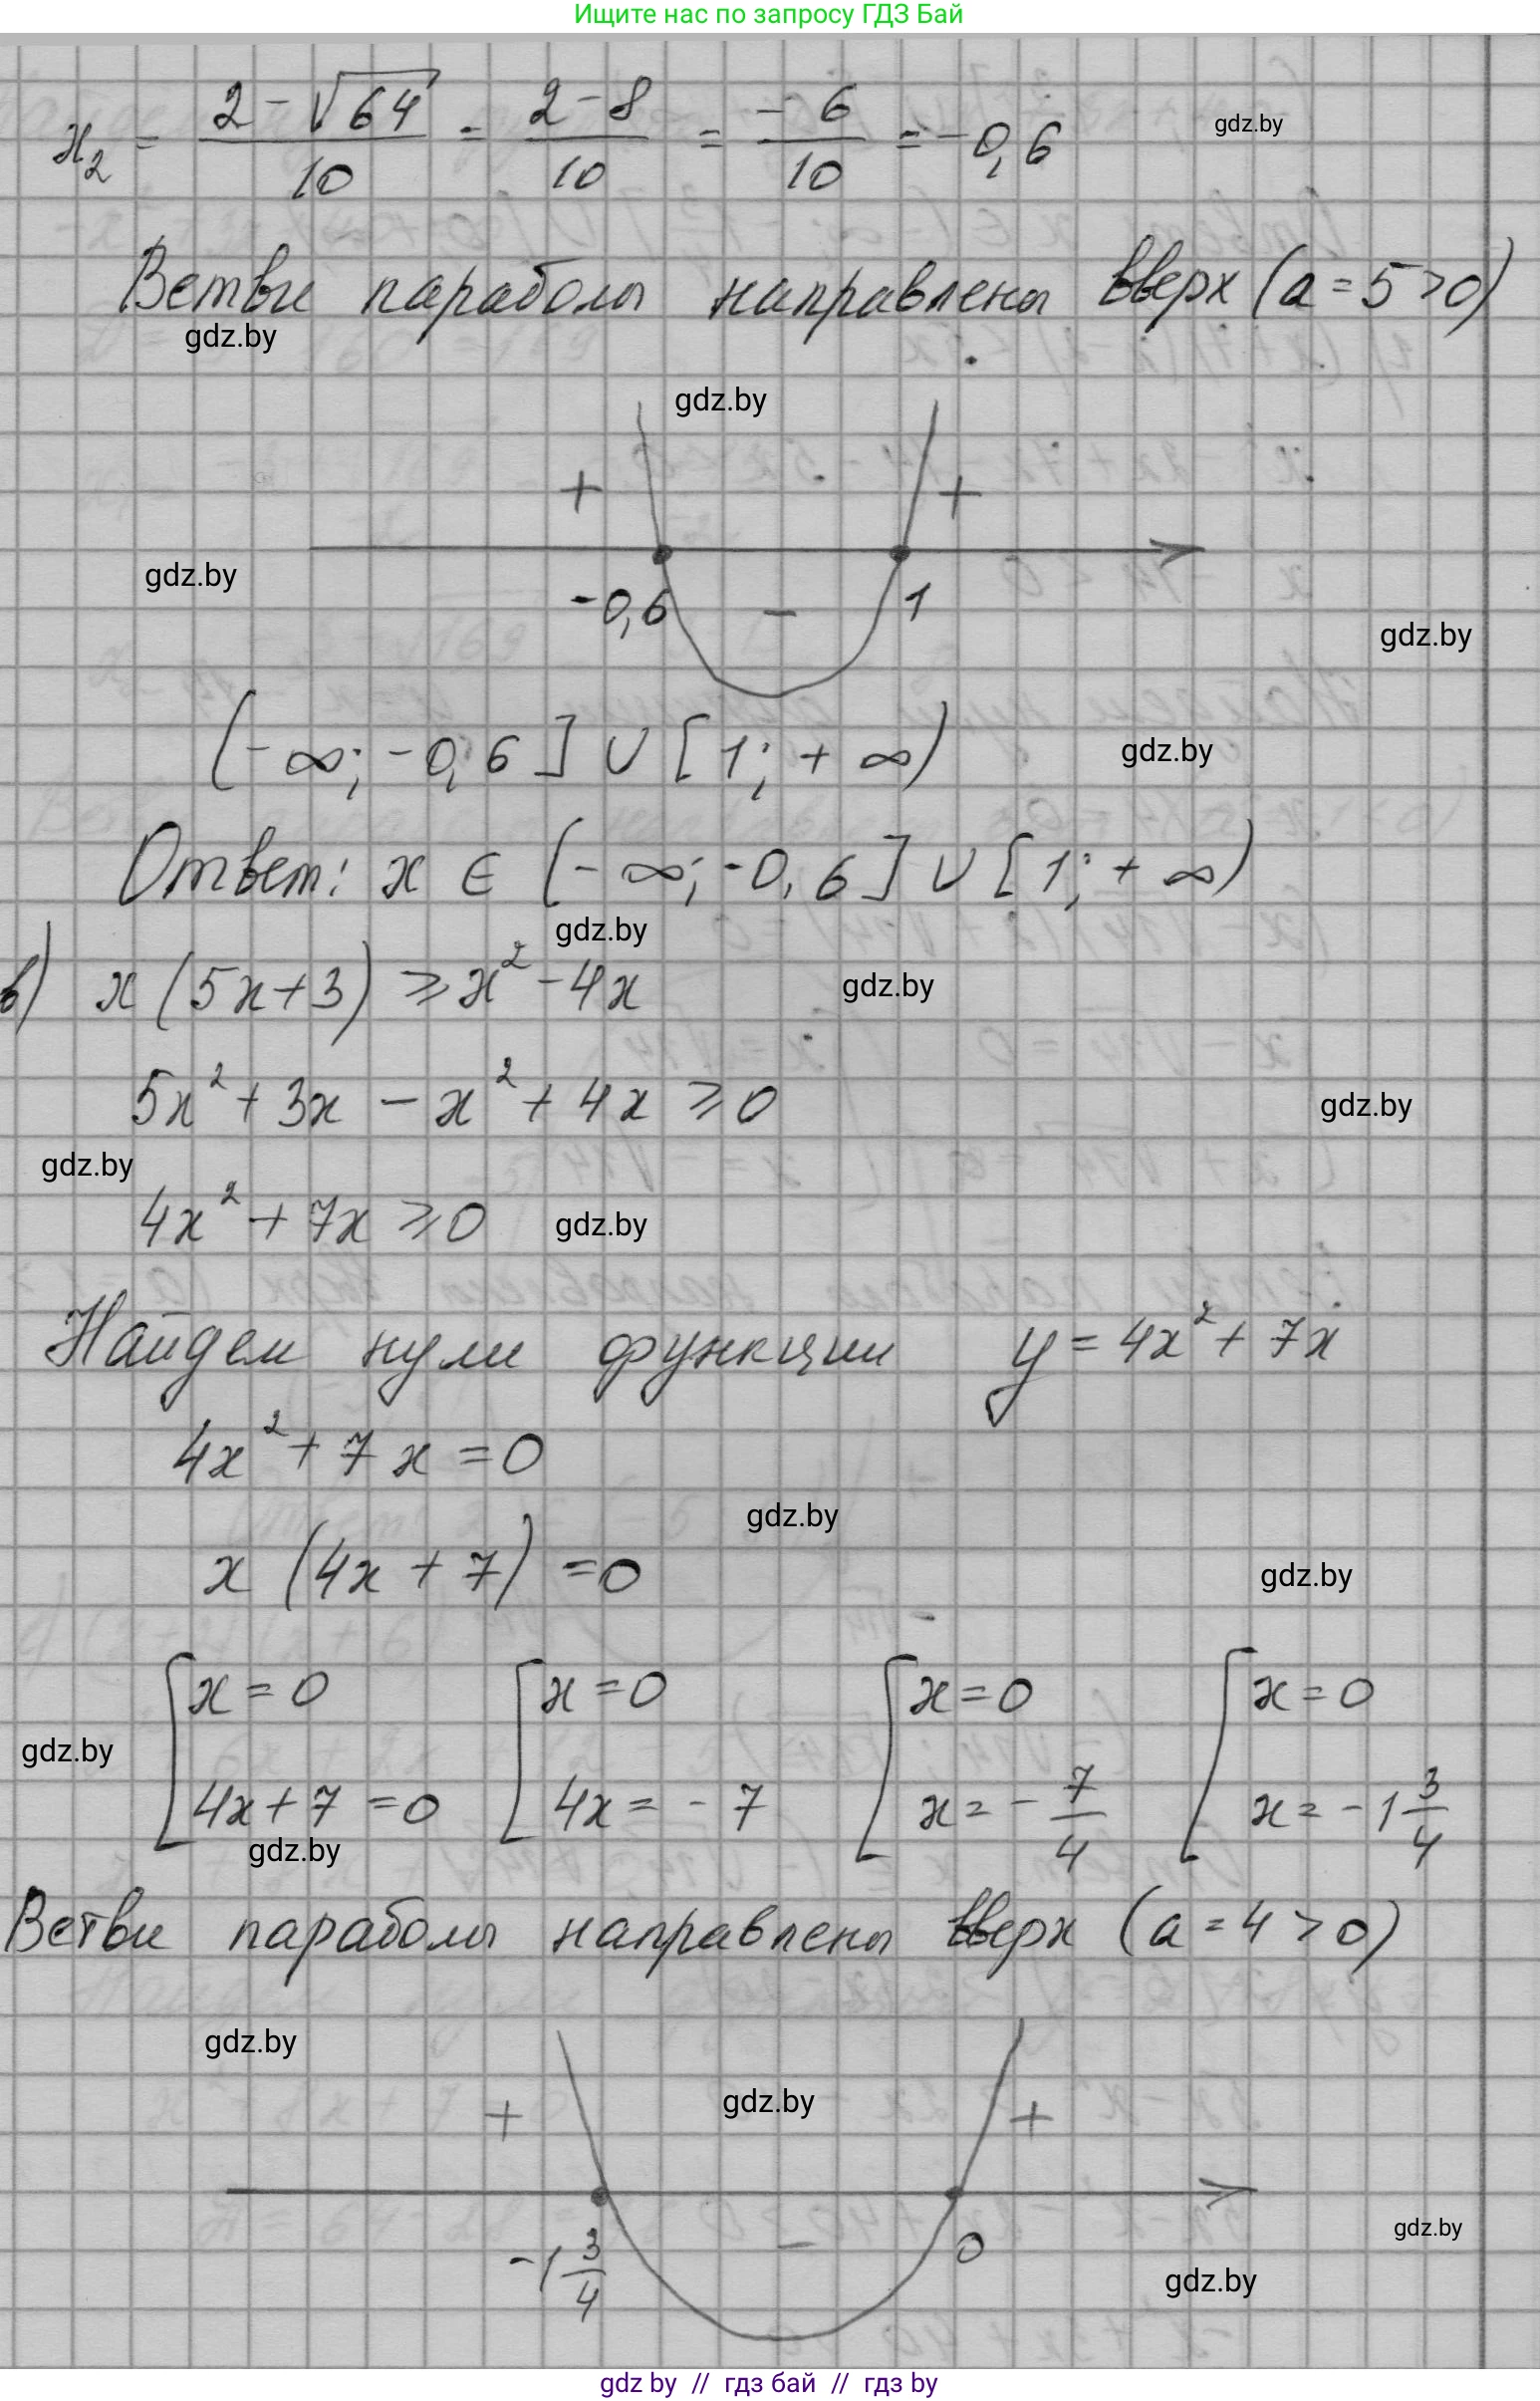 Ищите нас по запросу ГДЗ Бай
x₂ = (2 - √64)/10 = (2 - 8)/10 = (-6)/10 = -0,6
gdz.by
Ветви параболы направлены вверх (a = 5 > 0)
gdz.by
gdz.by
+ +
gdz.by
-0,6 - 1
gdz.by
(-∞; -0,6] ∪ [1; +∞)
gdz.by
Ответ: x ∈ (-∞; -0,6] ∪ [1; +∞)
gdz.by
в) x(5x+3) ⩾ x² - 4x
gdz.by
5x² + 3x - x² + 4x ⩾ 0
gdz.by
gdz.by
4x² + 7x ⩾ 0
gdz.by
Найдем нули функции y = 4x² + 7x
4x² + 7x = 0
gdz.by
x(4x + 7) = 0
gdz.by
[x = 0 [x = 0 [x = 0 [x = 0
gdz.by
4x + 7 = 0 4x = -7 x = -7/4 x = -1 3/4
gdz.by
Ветви параболы направлены вверх (a = 4 > 0)
gdz.by
gdz.by
+ +
-1 3/4 - 0
gdz.by
gdz.by
gdz by // гдз бай // гдз by